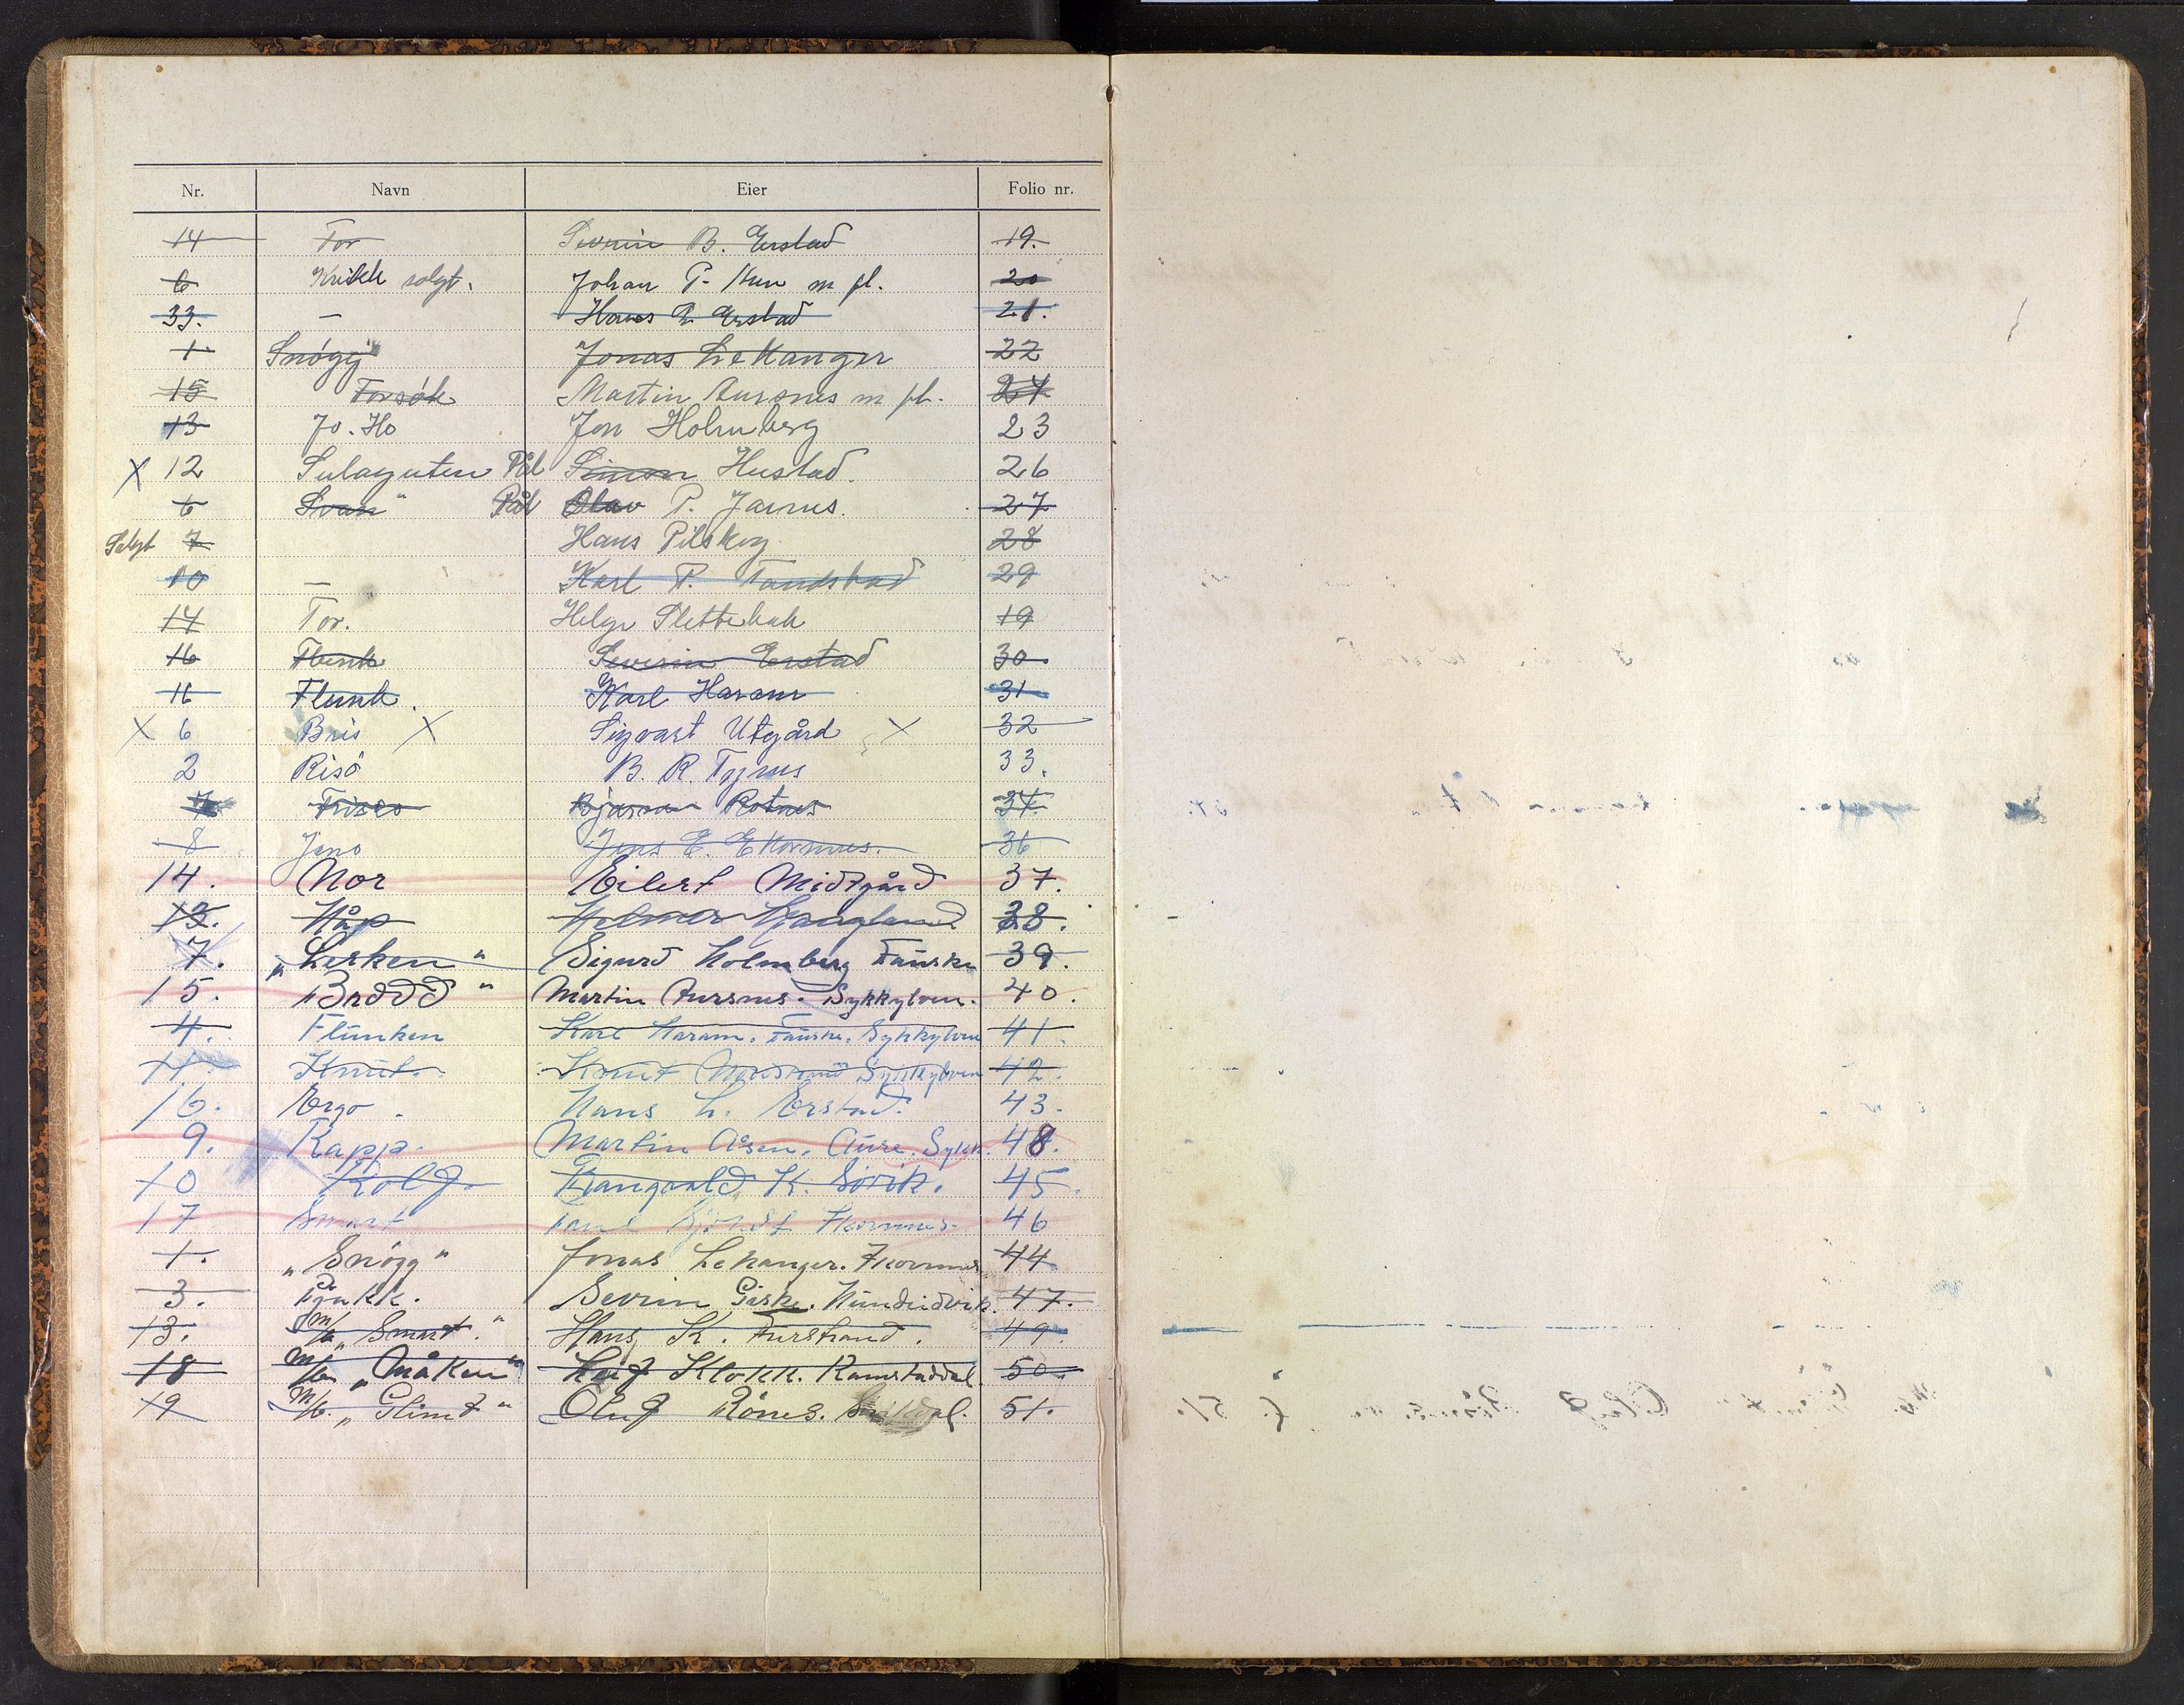 Nr. Navn Eier Folio nr.
14 Tor Severin B. Erstad 19.
6 Krikk solgt. Johan P. m fl. 20
33. — Hans E Erstad 21.
1 Snøgg Jonas Lekanger 22
15 Forsøk Martin Aursnes m fl. 24
13 Jo. Ho Jon Holmberg 23
X 12 Sulaguten Pål Simon Hustad. 26
6 Svan" Pål Olav P. Jarnes. 27
Solgt 7 Hans Pilskog 28
10 — Karl P. Tandstad 29
14 Tor. Helge Slettebak 19
16 Flink Severin Erstad 30.
11 Flunk. Karl Haram 31
X 6 Bris X Sigvart Utgård X 32
2 Risø B. R. Tynes 33.
7 Frisco Bjarne Rotnes 34.
8 Jeno Jens E. Ekornnes. 36
14. Nor Eilert Midtgård 37.
13. Håp Hjelmar 38.
7. „Lerken" Sigurd Holmberg Fauske 39.
15. „Brodd" Martin Aursnes. Sykkylven. 40.
4. Flunken Karl Haram. Fauske. Sykkylven 41.
11. Knut. Knut Nordstrand Sykkylven 42.
16. Ergo. Hans L. Erstad. 43.
9. Rapp. Martin Åsen. Aure. Sykk. 48.
10 Kolf. Rangvald K. Sørvik. 45.
17 Smart Ikornnes. 46
1. „Snøgg" Jonas Lekanger. Ikornnes 44
3. Fjukk. Sevrin Giske. Hundeidvik. 47.
13. M/b „Smart." Hans K. Furstrand. 49.
18 M/b „Måken" Leif Klokk. Ramstaddal. 50.
19 M/b. „Glimt" Oluf Rönes. 51.